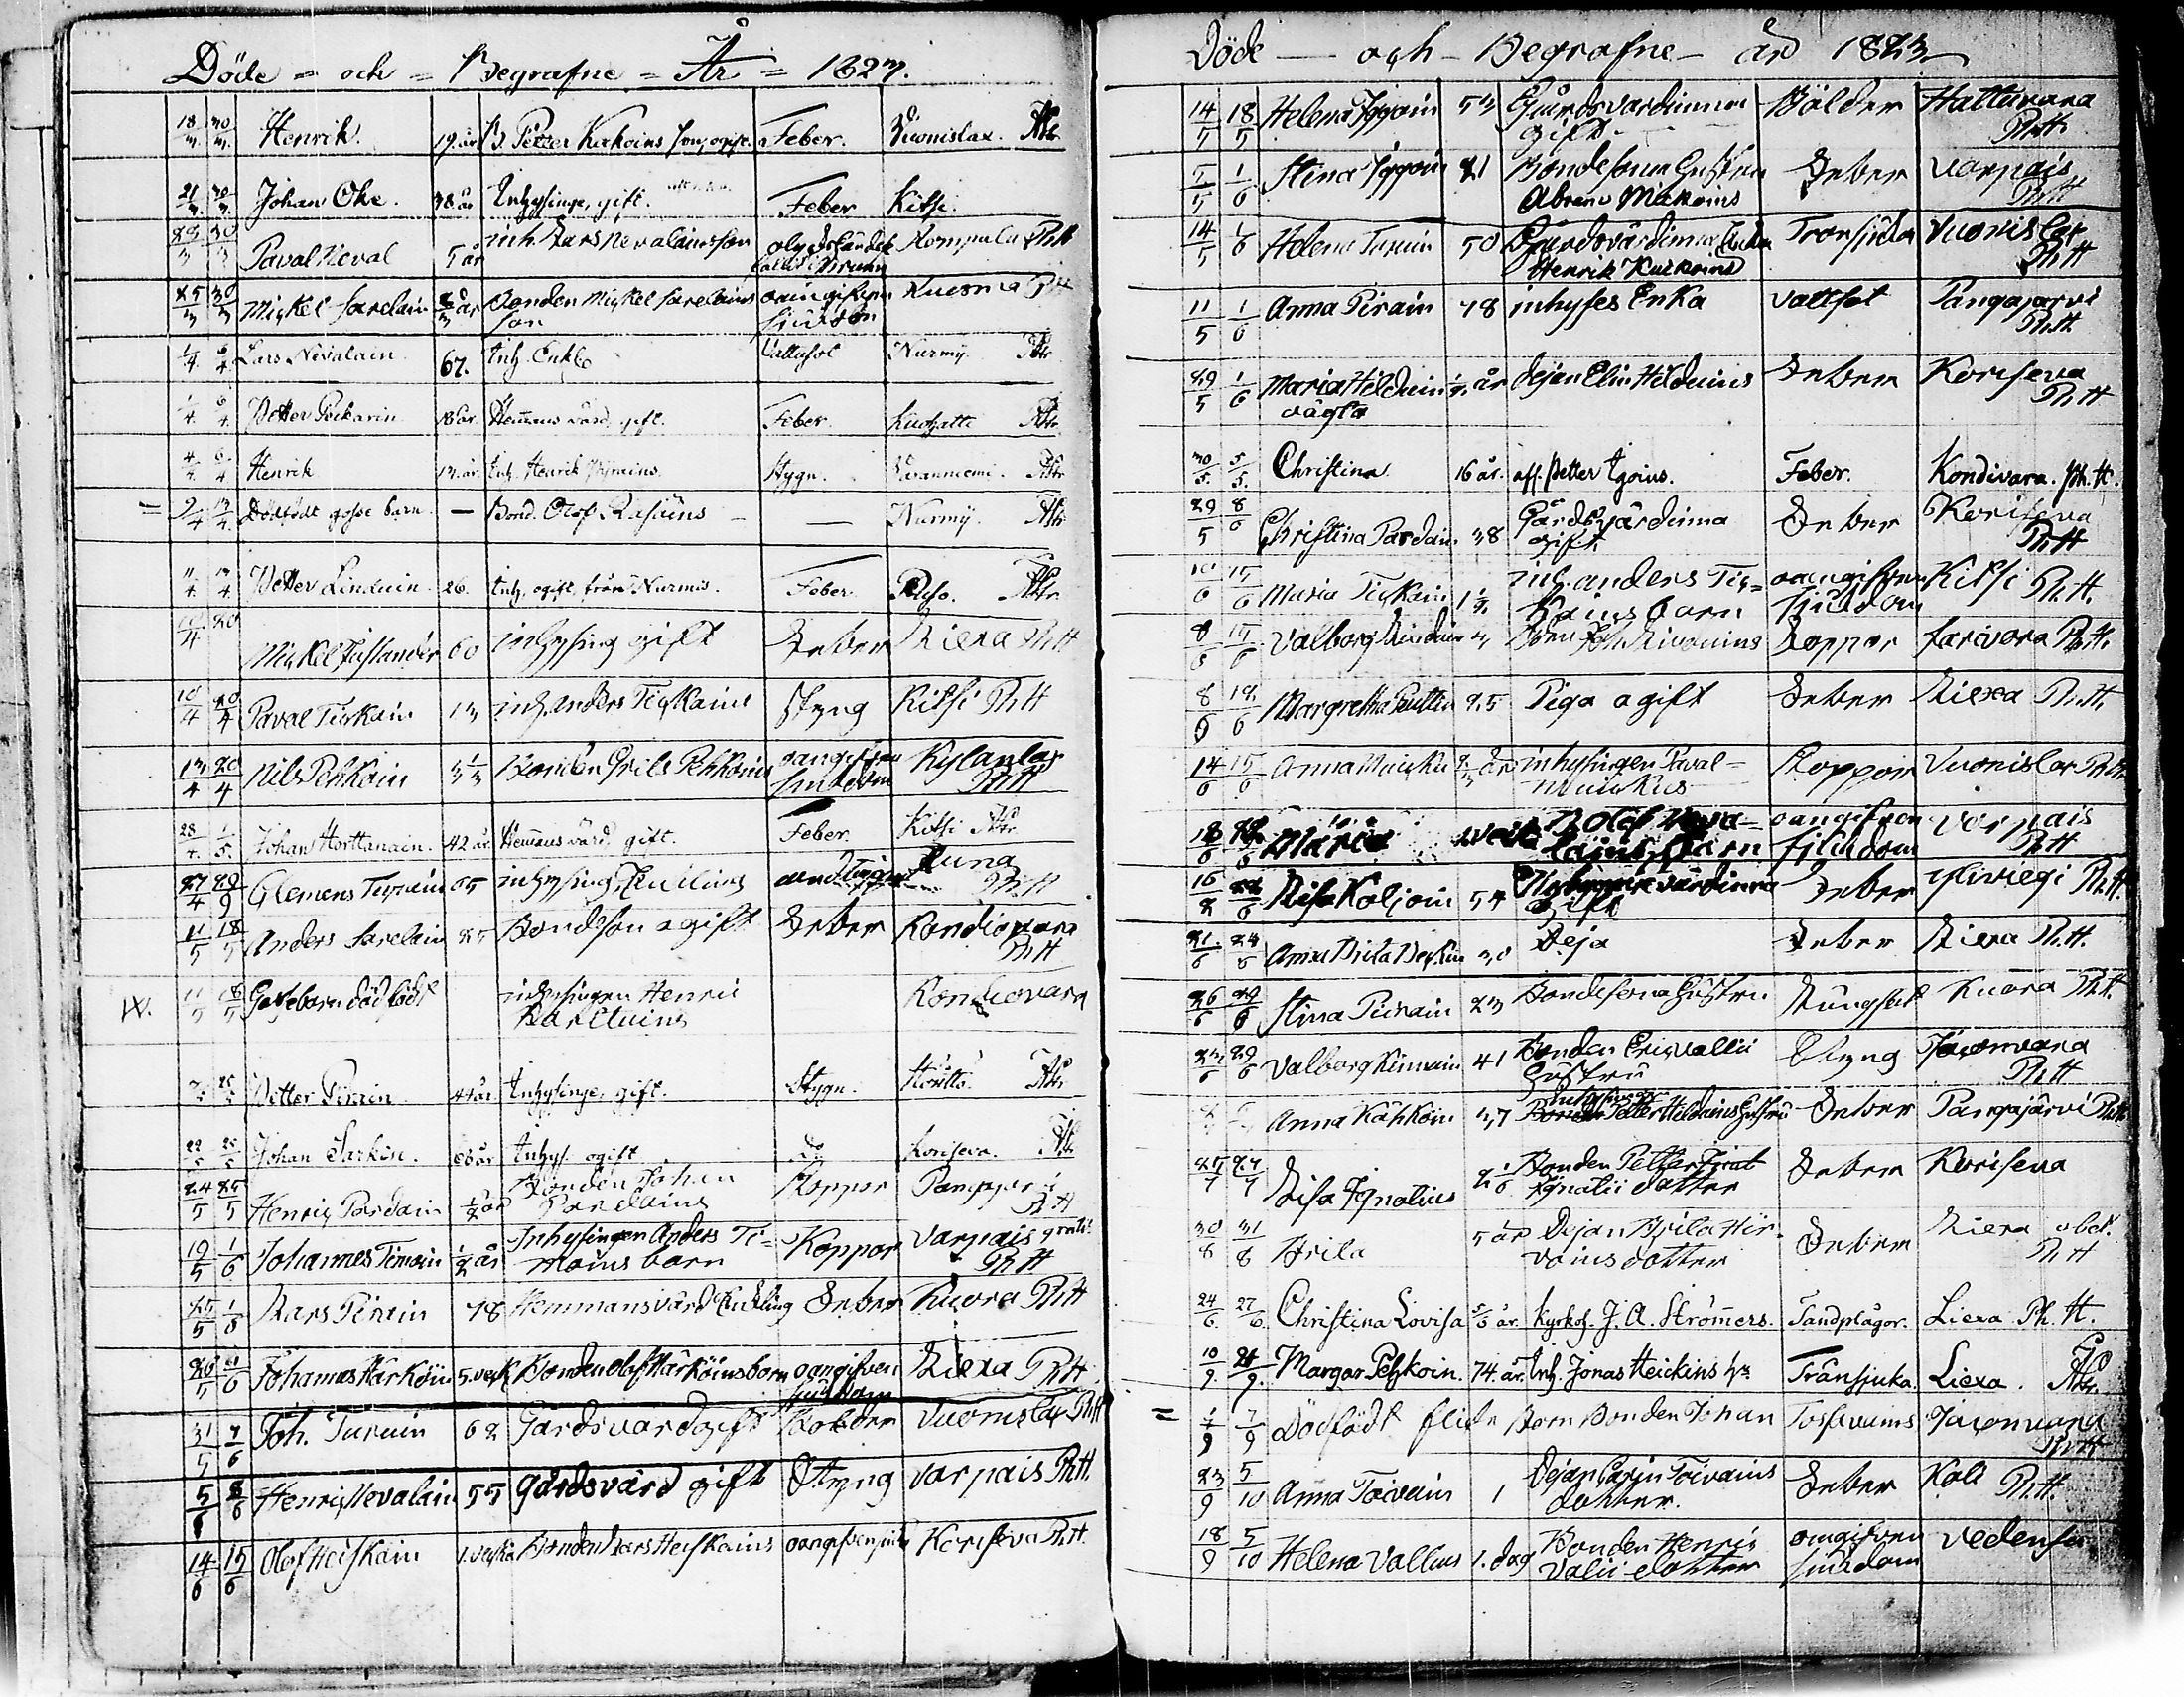 Döde = och = Begrafne = År = 1823.
18/3 30/3 Henrik. 19 år B. Petter Kakoins son, ogift. Feber. Vuonislax.
21/3 30/3 Johan Oke. 38 år Inhysinge, gift. Feber Kitsi.
29/3 30/3 Paval Neval 5 år inh. Lars Nevalains son olyckshändelse Kompula Ph H
25/3 30/3 Mickel Sarelain 2/3 år Bonden Mickel Sarelains son oangifven sjukdom Kuorna Ph H
1/4 6/4 Lars Nevalain 67. Inh. Enkl. Vattusot Nurmij.
1/4 6/4 Petter Peckarin Hemans värd, gift. Feber
4/4 6/4 Henrik 13 år Inh. Henrik Styng.
= 9/4 13/4 Dödfödt gosse barn — Bond. Olof Rasains — — Nurmij.
11/4 13/4 Petter Linduin 26. Inh. ogift, från Nurmis. Feber
10/4 20 Mickel Fislander 60 inhysing gift Feber Liexa Ph H
10/4 20/4 Paval Tickain 13 inh. Anders Tickains Styng Kitsi Ph H
13/4 20/4 Nils Pehkoin 3 1/3 Bonden Nils Pehkoins oangifven sjukdom Kylanlax Ph H
28/4 1/5 Johan Horttanain. 42 år Hemans värd, gift. Feber. Kitsi
27/4 29/9 Clemens Turuin 65 inhysing, Enkling Runa Ph H
11/5 18/5 Anders Sarelain 25 Bondeson ogift Feber Kondiovara Ph H
11/5 18/5 Gossebarn dödfödt inhysingen Henric Karltuins Kondiovara
7/5 25/5 Petter Pirain 44 år Inhysinge, gift. Stygn.
22/5 25/5 Johan Sarkin. 66 år Inhys. ogift do Koriseva.
24/5 25/5 Henric Pardain 1/2 år Bonden Johan Pardains Koppor Ph H
19/5 1/6 Johannes Timoin 1/2 år Inhysingen Anders Timoins barn Koppor Varpais gratis Ph H
25/5 1/6 Lars Pirain 78 Hemmansvärd Enkling Feber Kuora Ph H
26/5 1/6 Johannes Härköin 5. veck Bonden Olof Härköins barn oangifven sjukdom Liexa Ph H
31/5 7/6 Joh. Turuin 62 Gårdsvärd gift Bölder Vuonislax Ph H
5/6 8/6 Henric Nevalain 55 gårdsvärd gift Styng Varpais Ph H.
14/6 15/6 Olof Heiskain 1. vecka Bonden Lars Heiskains oangifven sjukd Koriseva Ph H.
Döde — och — Begrafne — år 1823
14/5 18/5 Helena Iggoin 53 Gjårdsvärdinna gift Bölder Hatturara Ph H.
5/5 1/6 Stina Iggoin 21 Bondesons Hustru Abram Mickoins Feber Varpais Ph H
14/5 1/6 Helena Turuin 50 Gårdsvärdinna Enka Henrik Kuckoins Trånsjuka Vuonislax Ph H
11/5 1/6 Anna Pirain 78 inhyses Enka Vattsot Pangajarvi Ph H.
29/5 1/6 Maria Hilduin år dejan Elin Hilduins Feber Koriseva Ph H
30/5 5/5. Christina 16 år. aff. Petter Igoins. Feber. Kondivara. Ph. H.
29/5 8/6 Christina Pardain 38 Gårdsvärdinna gift Feber Koriseva Ph H
10/6 15/6 Maria Tickain 1 1/2 inh. anders Tickains barn oangifven sjukdom Kitsi Ph. H.
8/6 15/6 Valborg Koppor Sarivara Ph. H.
8/6 12/6 Margretha 25 Piga ogift Feber Liexa Ph. H.
14/6 15/6 Anna Muicku inhysingen Paval Muickus Koppor Vuonislax Ph H
18/6 22/6 Maria B. Olof Nevalains barn oangifven sjukdom Varpais Ph H
16/6 22/6 Lisa Koljoin 54 gift Feber Ph H.
21/6 24/6 Anna Brita 30 Deja Feber Liexa Ph. H.
26/6 29/6 Stina Piirain 23 Bondesons Hustru Lungsot Kuora Ph. H.
29/6 Valborg Kinnuin 41 Bonden Eric Vallii Hustru Styng Jaconvaara Ph H
Anna Kähköin 37 inhysingen Petter Hilduins Hustru Feber Pangajärvi Ph H
25/7 27/7 Lisa Ignatius Bonden Petter Ignatii dotter Feber Koriseva
30/8 31/8 Brita 5 år Dejan Brita Hirvoins dotter Feber Liexa Ph H
24/6. 27/6. Christina Lovisa 5/6 år. Kyrkoh. J. A. Strömmers. Tandplågor. Liexa. Ph. H.
10/9 21/9. Margar. Pehkoin. 74. år. Inh. Jonas Heickins Trånsjuka. Liexa.
= 1/9 7/9 Dödfödt flicke Barn Bonden Johan Toskavains Jaconvaara Ph H
23/9 5/10 Anna Toivain 1 Dejan Carin Toivains dotter. Feber Koli Ph. H.
18/9 5/10 Helena Vallius 1. dag Bonden Henric Valii dotter oangifven sjukdom